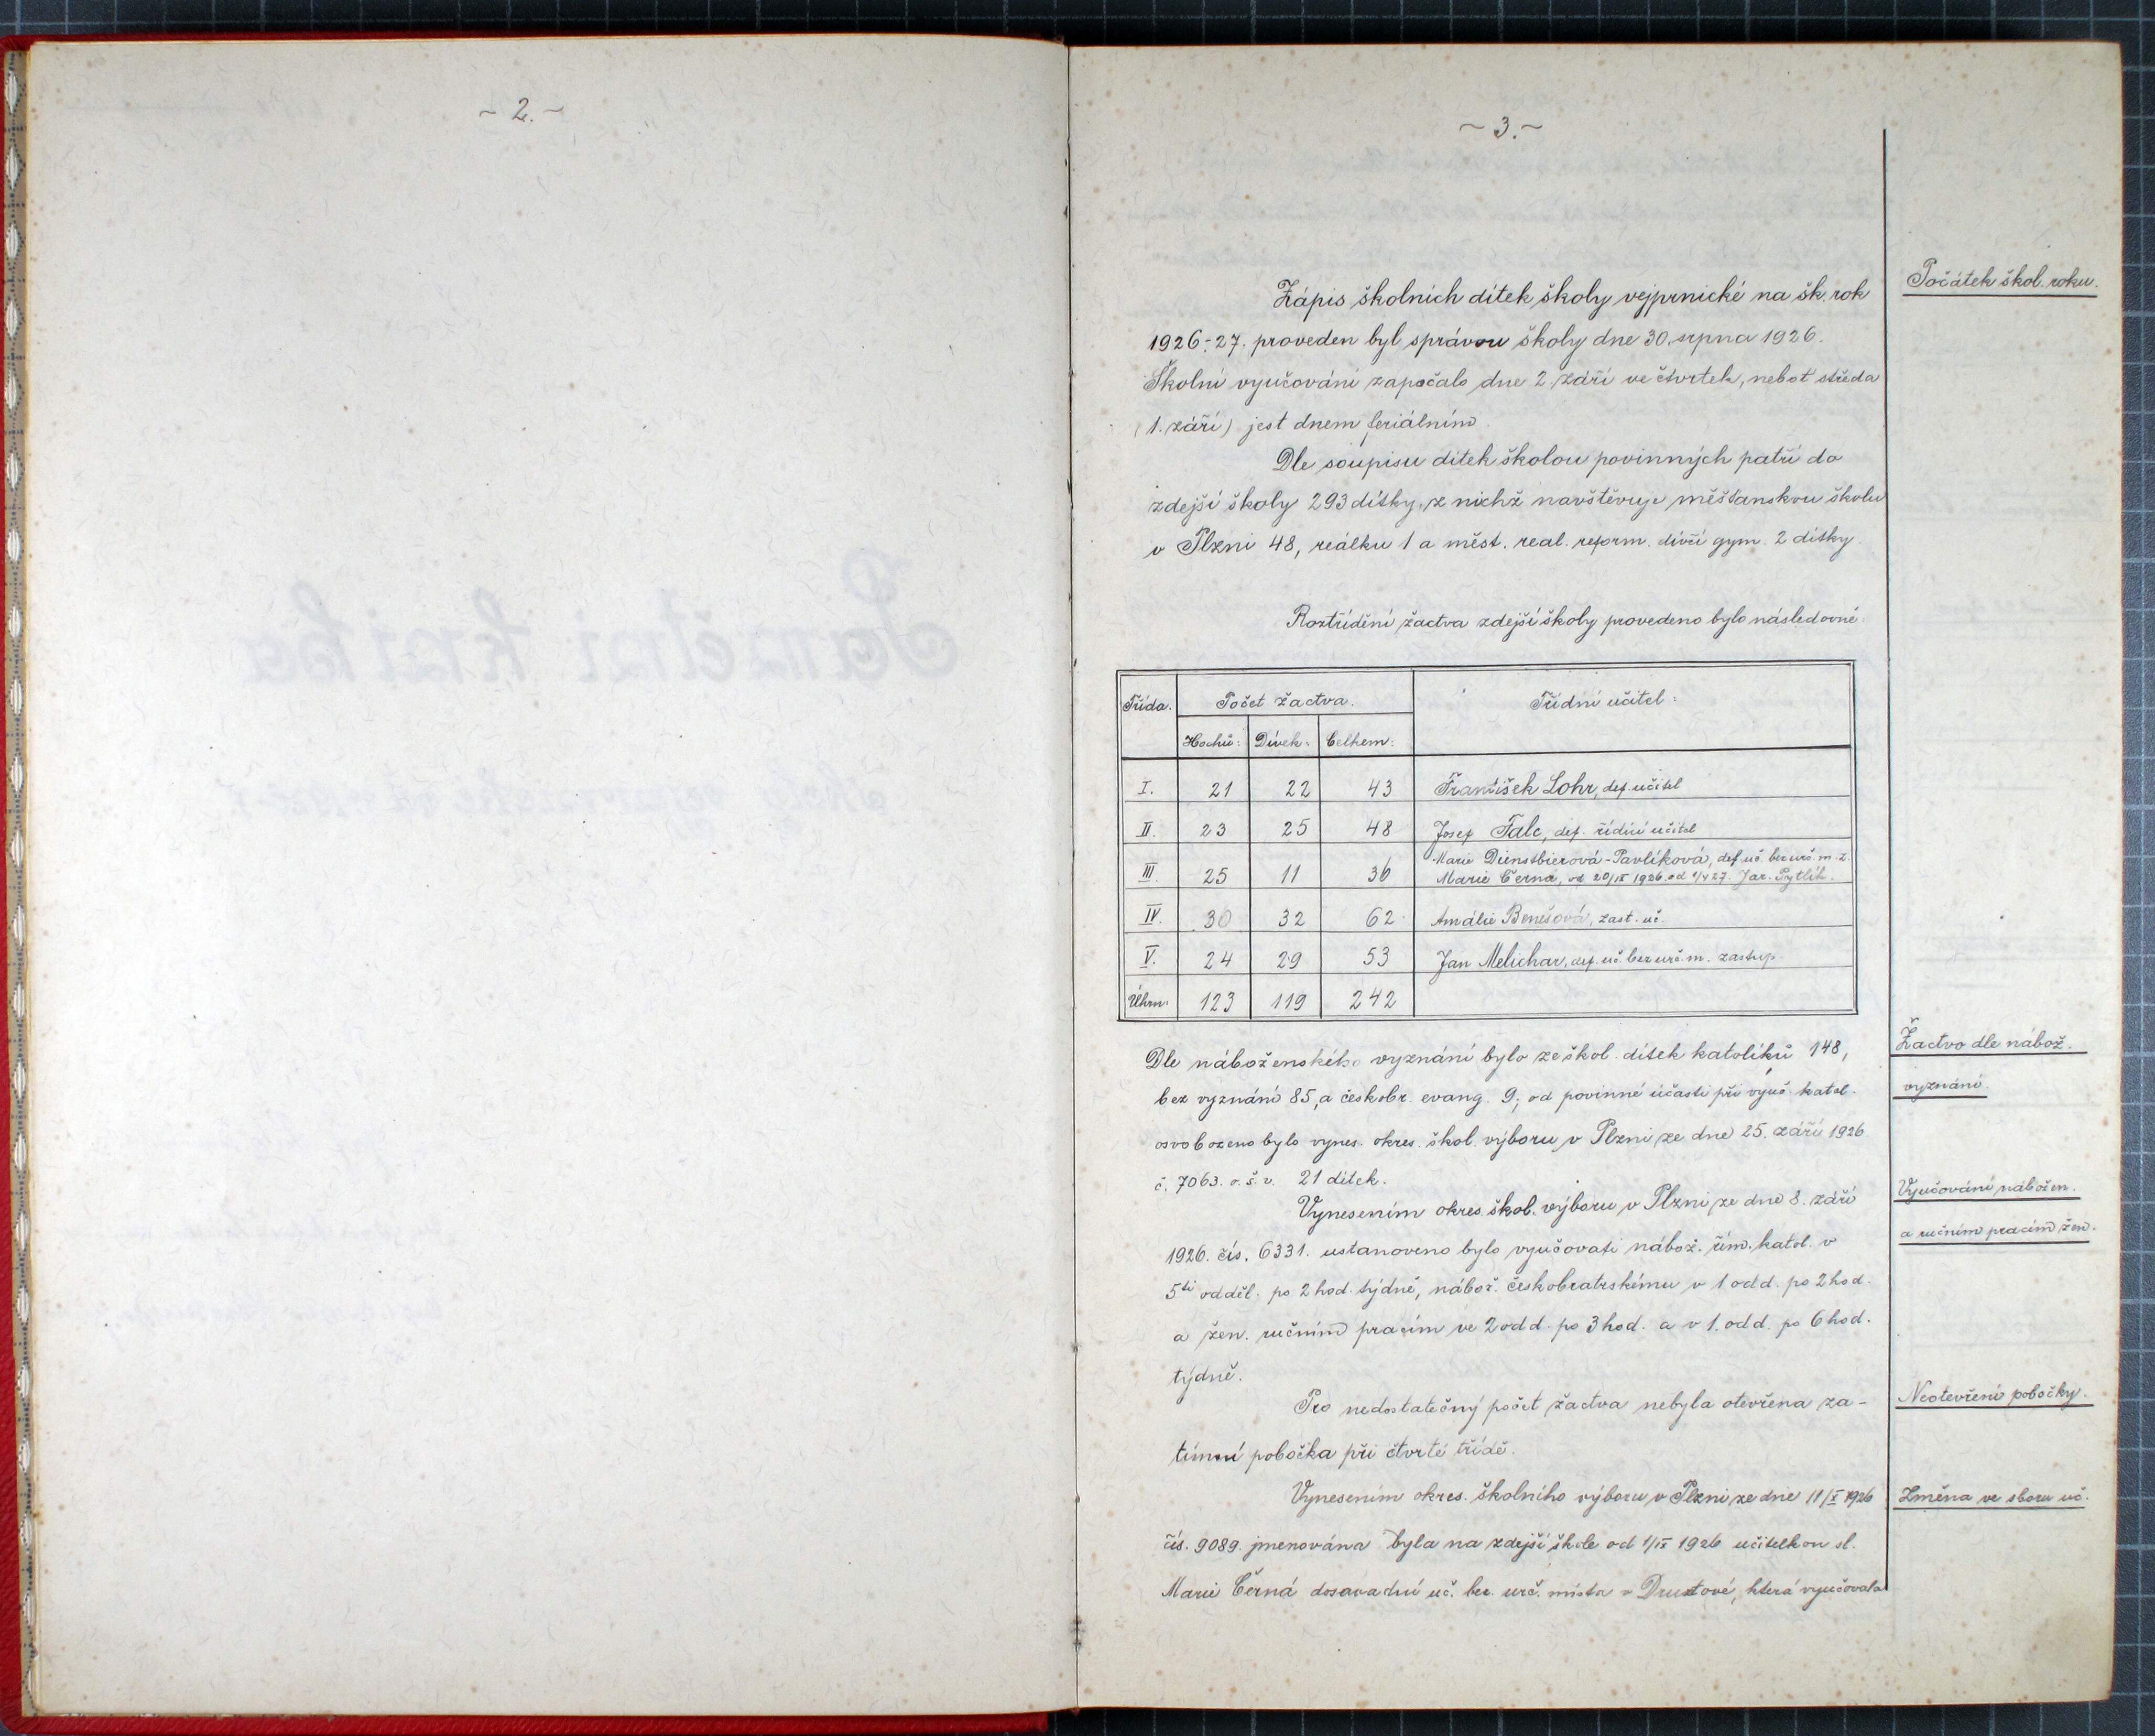 ~ 2. ~
~ 3. ~
Počátek škol. roku.
Zápis školních dítek školy vejprnické na šk. rok
1926-27. proveden byl správou školy dne 30. srpna 1926.
Školní vyučování započalo dne 2 září ve čtvrtek, neboť středa
(1. září) jest dnem feriálním.
Dle soupisu dítek školou povinných patří do
zdejší školy 293 dítky, z nichž navštěvuje měšťanskou školu
v Plzni 48, reálku 1 a měst. real. reform. dívčí gym. 2 dítky.
Roztřídění žactva zdejší školy provedeno bylo následovně:
Třída. Počet žactva. Třídní učitel:
Hochů: Dívek: Celkem:
I. 21 22 43 František Lohr, def. učitel
II. 23 25 48 Josef Falc, def. řídící učitel
III. 25 11 36 Marie Dienstbierová-Pavlíková, def. uč. bez urč. m. z.
Marie Černá, od 20/IX 1926. od 1/V 27. Jar. Pytlík.
IV. 30 32 62 Amálie Benešová, zast. uč.
V. 24 29 53 Jan Melichar, def. uč. bez urč. m. zastup.
Úhrn: 123 119 242
Žactvo dle nábož.
vyznání.
Dle náboženského vyznání bylo ze škol. dítek katolíků 148,
bez vyznání 85, a českobr. evang. 9; od povinné účasti při vyuč. katol.
osvobozeno bylo vynes. okres. škol. výboru v Plzni ze dne 25. září 1926
č. 7063. o. š. v. 21 dítek.
Vyučování nábožen.
a ručním pracím žen.
Vynesením okres. škol. výboru v Plzni ze dne 8. září
1926. čís. 6331. ustanoveno bylo vyučovati nábož. řím. katol. v
5ti odděl. po 2 hod. týdně, nábož. českobratrskému v 1 odd. po 2 hod.
a žen. ručním pracím ve 2 odd. po 3 hod. a v 1. odd. po 6 hod.
týdně.
Neotevření pobočky.
Pro nedostatečný počet žactva nebyla otevřena za-
tímní pobočka při čtvrté třídě.
Změna ve sboru uč.
Vynesením okres. školního výboru v Plzni ze dne 11/X 1926
čís. 9089. jmenována byla na zdejší škole od 1/IX 1926 učitelkou sl.
Marie Černá dosavadní uč. bez. urč. místa v Druztové, která vyučovala